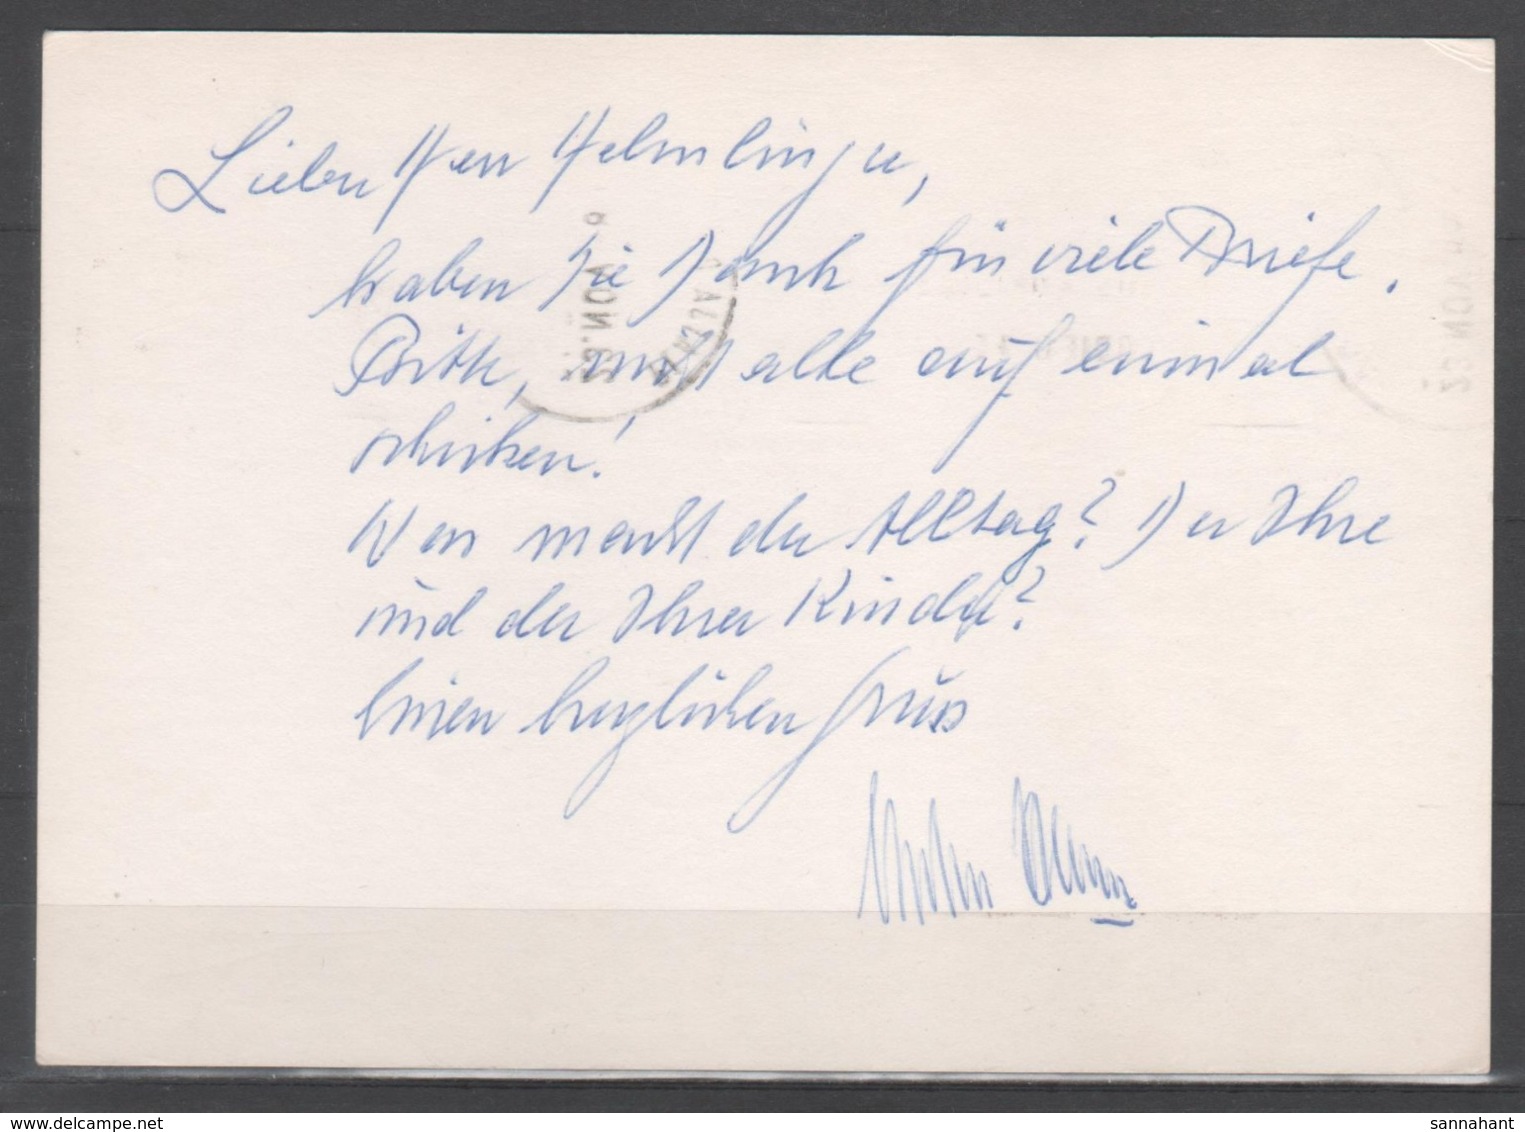 Lieber Herr Helmlinger,
haben Sie Dank für viele Briefe.
Bitte, nicht alle auf einmal
schicken!
Was macht der Alltag? Der Ihre
und der Ihrer Kinder?
Einen herzlichen Gruss
23 NOV
delcampe.net
sannahant